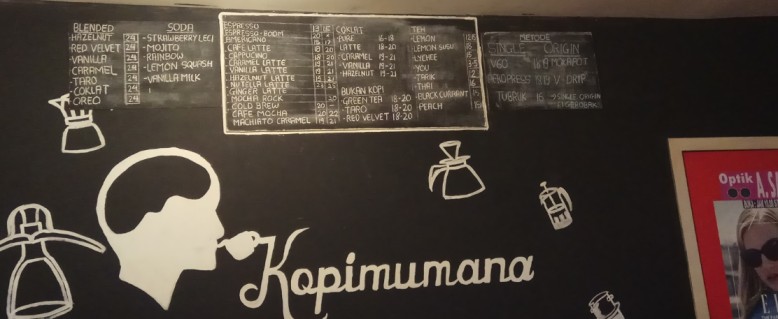 BLENDED
HAZELNUT 24
RED VELVET 24
VANILLA 24
CARAMEL 24
TARO 24
COKLAT 24
OREO 24
SODA
-STRAWBERRY LECI
-MOJITO
-RAINBOW
-LEMON SQUASH
-VANILLA MILK
ESPRESSO
ESPRESSO ROOM
AMERICANO
CAFE LATTE
CAPPUCINO
CARAMEL LATTE
VANILLA LATTE
HAZELNUT LATTE
NUTELLA LATTE
GINGER LATTE
MOCHA ROCK
COLD BREW
CAFE MOCHA
MACHIATO CARAMEL 19 21
COKLAT
-PURE 16-18
-LATTE 18-20
-CARAMEL 19-21
-VANILLA 19-21
-HAZELNUT 19-21
BUKAN KOPI
-GREEN TEA 18-20
-TARO 18-20
-RED VELVET 18-20
TEH
-LEMON
-LEMON SUSU
-LYCHEE
-YOU
-TARIK
-THAI
-BLACK CURRANT
-PEACH
METODE
SINGLE ORIGIN
V60 18
MOKAPOT
AEROPRESS
V-DRIP
TUBRUK 15
SINGLE ORIGIN
Kopimumana
Optik